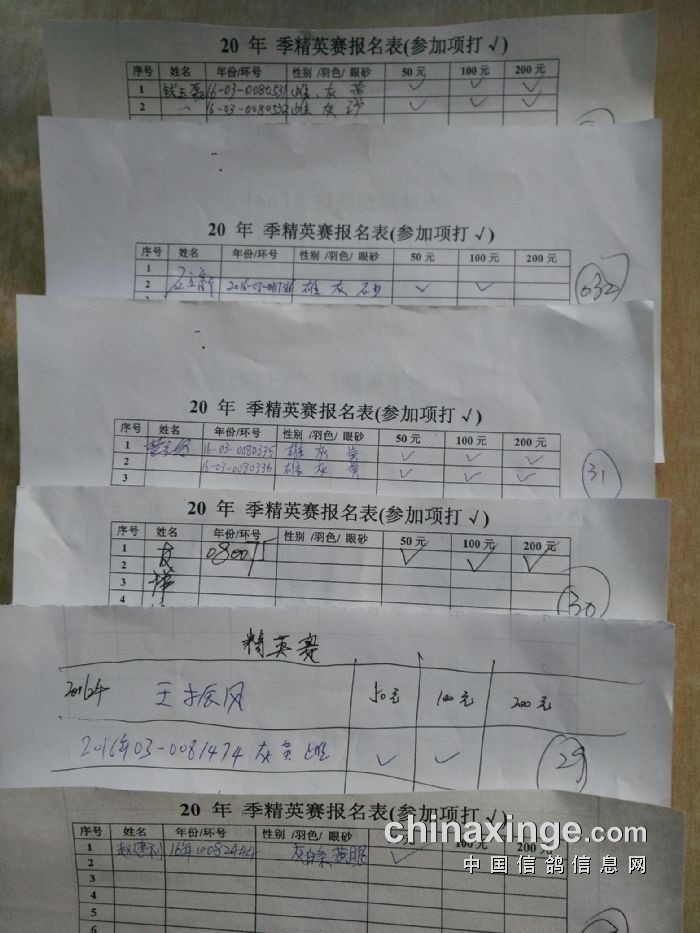 20 年 季精英赛报名表(参加项打 √)
序号 姓名 年份/环号 性别 /羽色/ 眼砂 50 元 100 元 200 元
1 16-03-0080531 雄 灰 黄 √ √ √
2 16-03-0080532 雄 灰 砂 √ √ √
20 年 季精英赛报名表(参加项打 √)
序号 姓名 年份/环号 性别 /羽色/ 眼砂 50 元 100 元 200 元
1
2 雄 灰 砂 √ √
032
20 年 季精英赛报名表(参加项打 √)
序号 姓名 年份/环号 性别 /羽色/ 眼砂 50 元 100 元 200 元
1 16-03-0080335 雄 灰 黄 √ √ √
2 16-03-0080336 雄 灰 黄 √ √ √
3
31
20 年 季精英赛报名表(参加项打 √)
序号 姓名 年份/环号 性别 /羽色/ 眼砂 50 元 100 元 200 元
1 √ √ √
2
3
4
30
精英赛
2016年 王振风 50元 100元 200元
2016年03-0081474 灰 黄 雄 √ √
29
20 年 季精英赛报名表(参加项打 √)
序号 姓名 年份/环号 性别 /羽色/ 眼砂 100 元 200 元
1 赵建利 灰白条 黄眼 √
2
3
4
5
6
chinaxinge.com
中国信鸽信息网